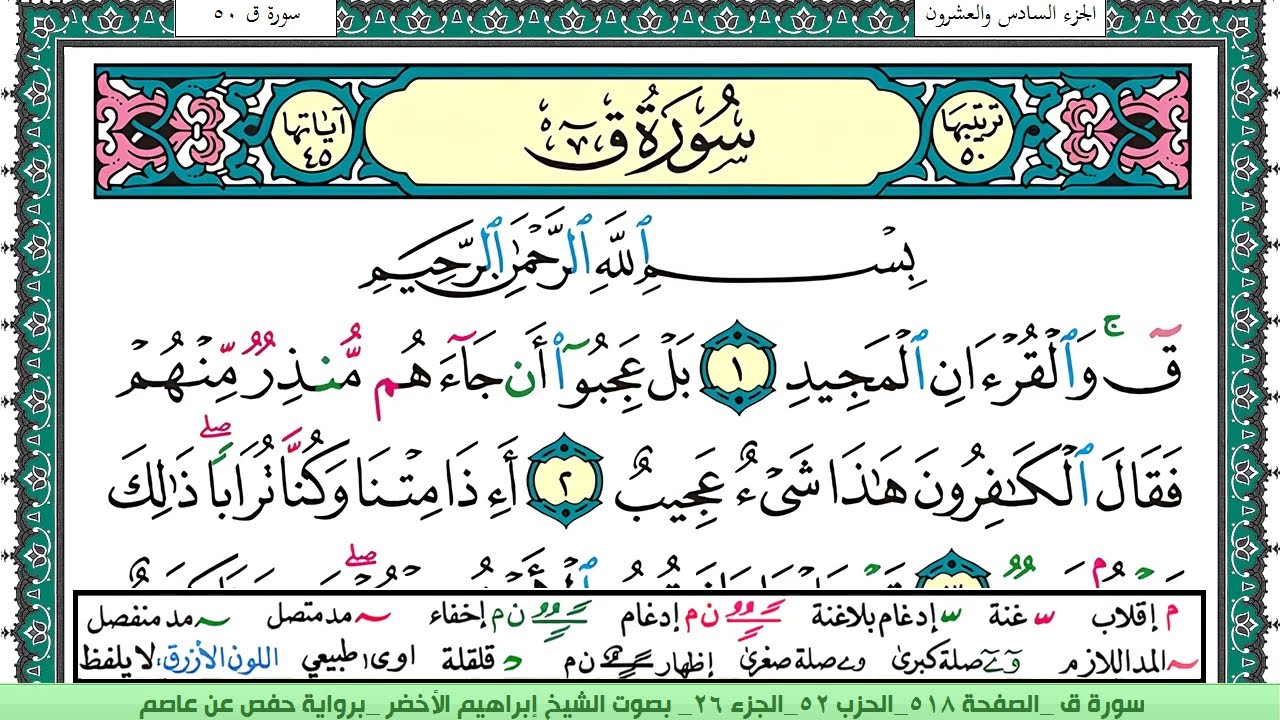 الجزء السادس والعشرون
سورة ق ٥٠
ترتيبها ٥٠
سُورَةُ قٓ
آياتها ٤٥
بِسْمِ ٱللَّهِ ٱلرَّحْمَٰنِ ٱلرَّحِيمِ
قٓ ۚ وَٱلْقُرْءَانِ ٱلْمَجِيدِ ١ بَلْ عَجِبُوٓا۟ أَن جَآءَهُم مُّنذِرٌ مِّنْهُمْ
فَقَالَ ٱلْكَٰفِرُونَ هَٰذَا شَىْءٌ عَجِيبٌ ٢ أَءِذَا مِتْنَا وَكُنَّا تُرَابًا ۖ ذَٰلِكَ
م إقلاب س غنة س إدغام بلاغنة ن م إدغام ن م إخفاء مد متصل مد منفصل
المد اللازم و ے صلة كبرى و ے صلة صغرى إظهار ن م د قلقلة اوى طبيعي اللون الأزرق: لا يلفظ
سورة ق _الصفحة ٥١٨_الحزب ٥٢_الجزء ٢٦_ بصوت الشيخ إبراهيم الأخضر _برواية حفص عن عاصم